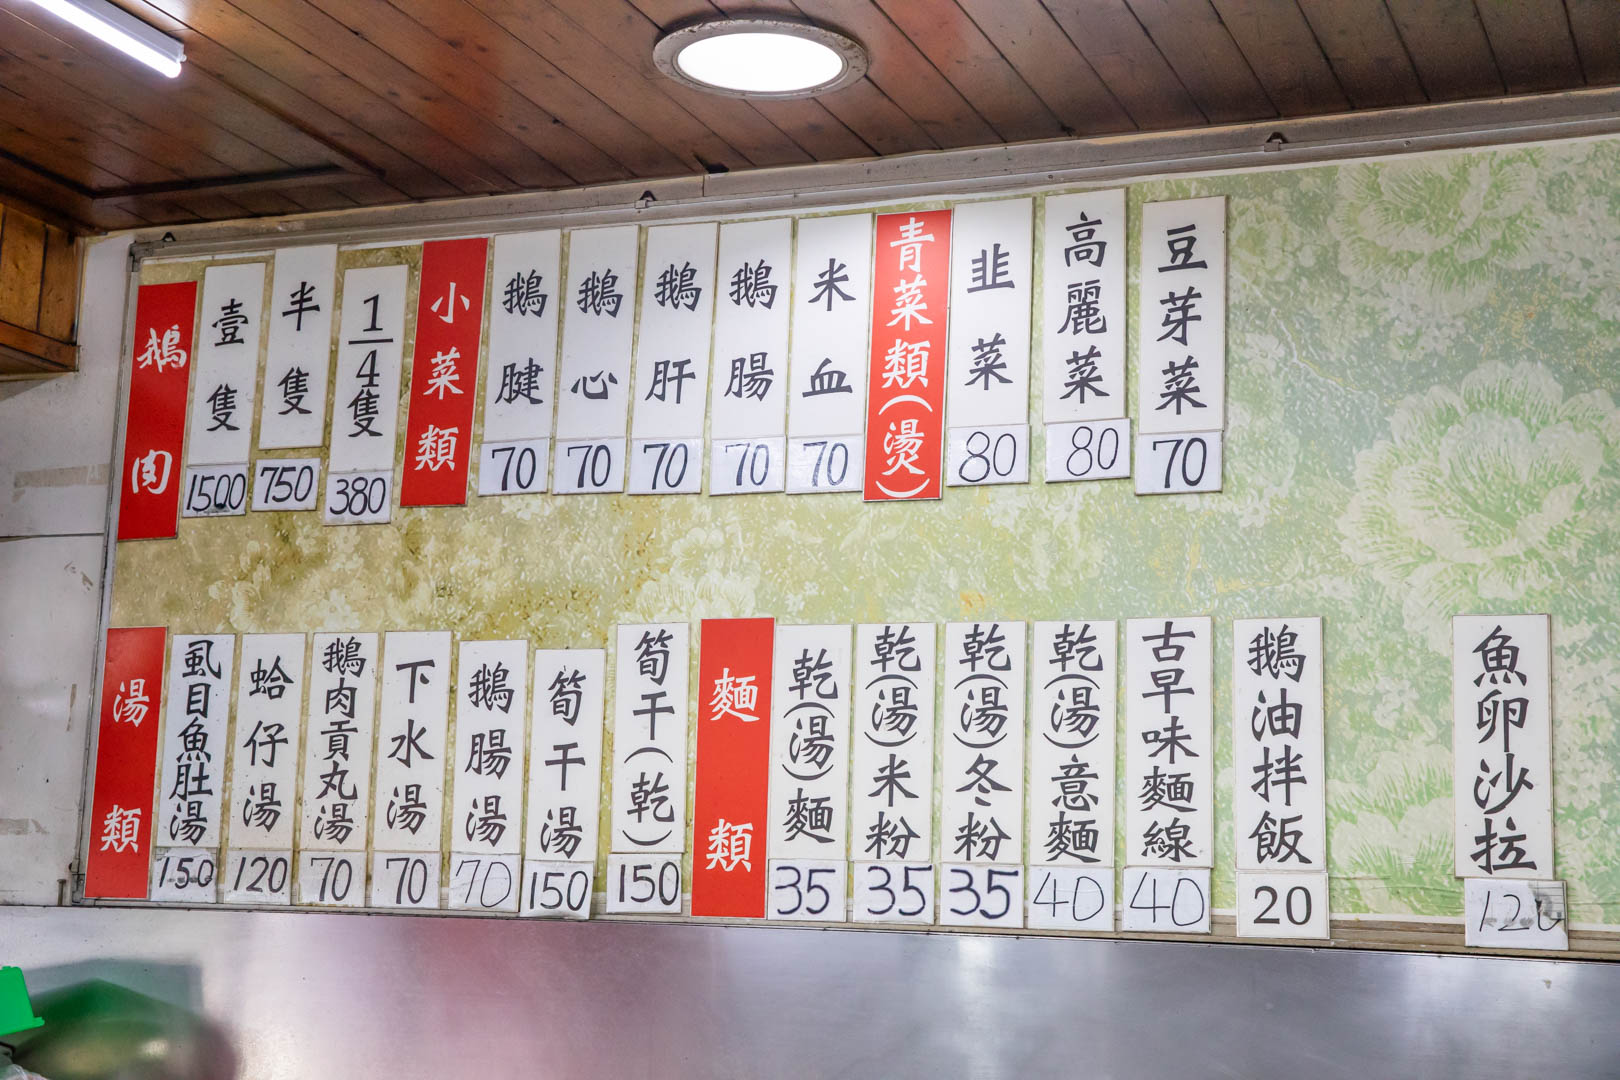 鵝肉
壹隻
1500
半隻
750
1/4隻
380
小菜類
鵝腱
70
鵝心
70
鵝肝
70
鵝腸
70
米血
70
青菜類(燙)
韭菜
80
高麗菜
80
豆芽菜
70
湯類
虱目魚肚湯
150
蛤仔湯
120
鵝肉貢丸湯
70
下水湯
70
鵝腸湯
70
筍干湯
150
筍干(乾)
150
麵類
乾(湯)麵
35
乾(湯)米粉
35
乾(湯)冬粉
35
乾(湯)意麵
40
古早味麵線
40
鵝油拌飯
20
魚卵沙拉
120